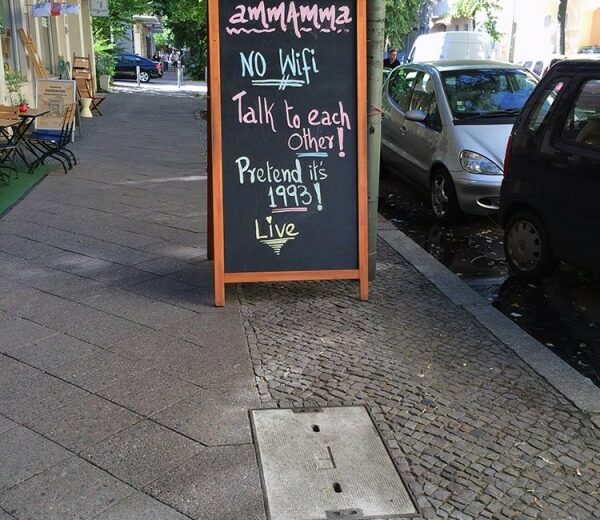 ammAmma
NO Wifi
Talk to each
Other!
Pretend it's
1993!
Live